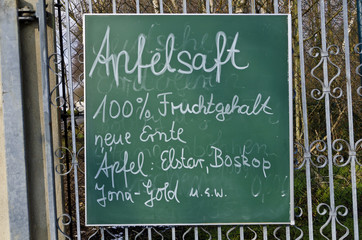 Apfelsaft
100% Fruchtgehalt
neue Ernte
Äpfel: Elstar, Boskop
Jona-Gold u.s.w.